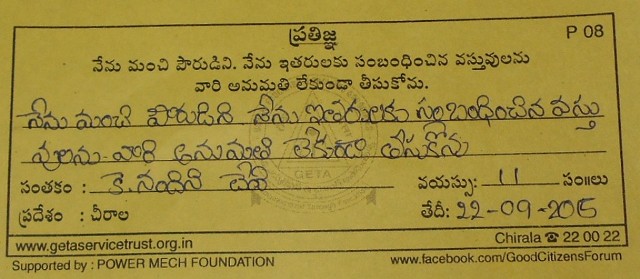 ప్రతిజ్ఞ
P 08
నేను మంచి పౌరుడిని. నేను ఇతరులకు సంబంధించిన వస్తువులను
వారి అనుమతి లేకుండా తీసుకోను.
నేను మంచి పౌరుడిని నేను ఇతరులకు సంబంధించిన వస్తు
వులను వారి అనుమతి లేకుండా తీసుకోను
సంతకం : కె. నందిని దేవి వయస్సు: 11 సం॥లు
ప్రదేశం : చీరాల తేదీ: 22-09-2015
GETA
www.getaservicetrust.org.in Chirala ☎ 22 00 22
Supported by : POWER MECH FOUNDATION www.facebook.com/GoodCitizensForum